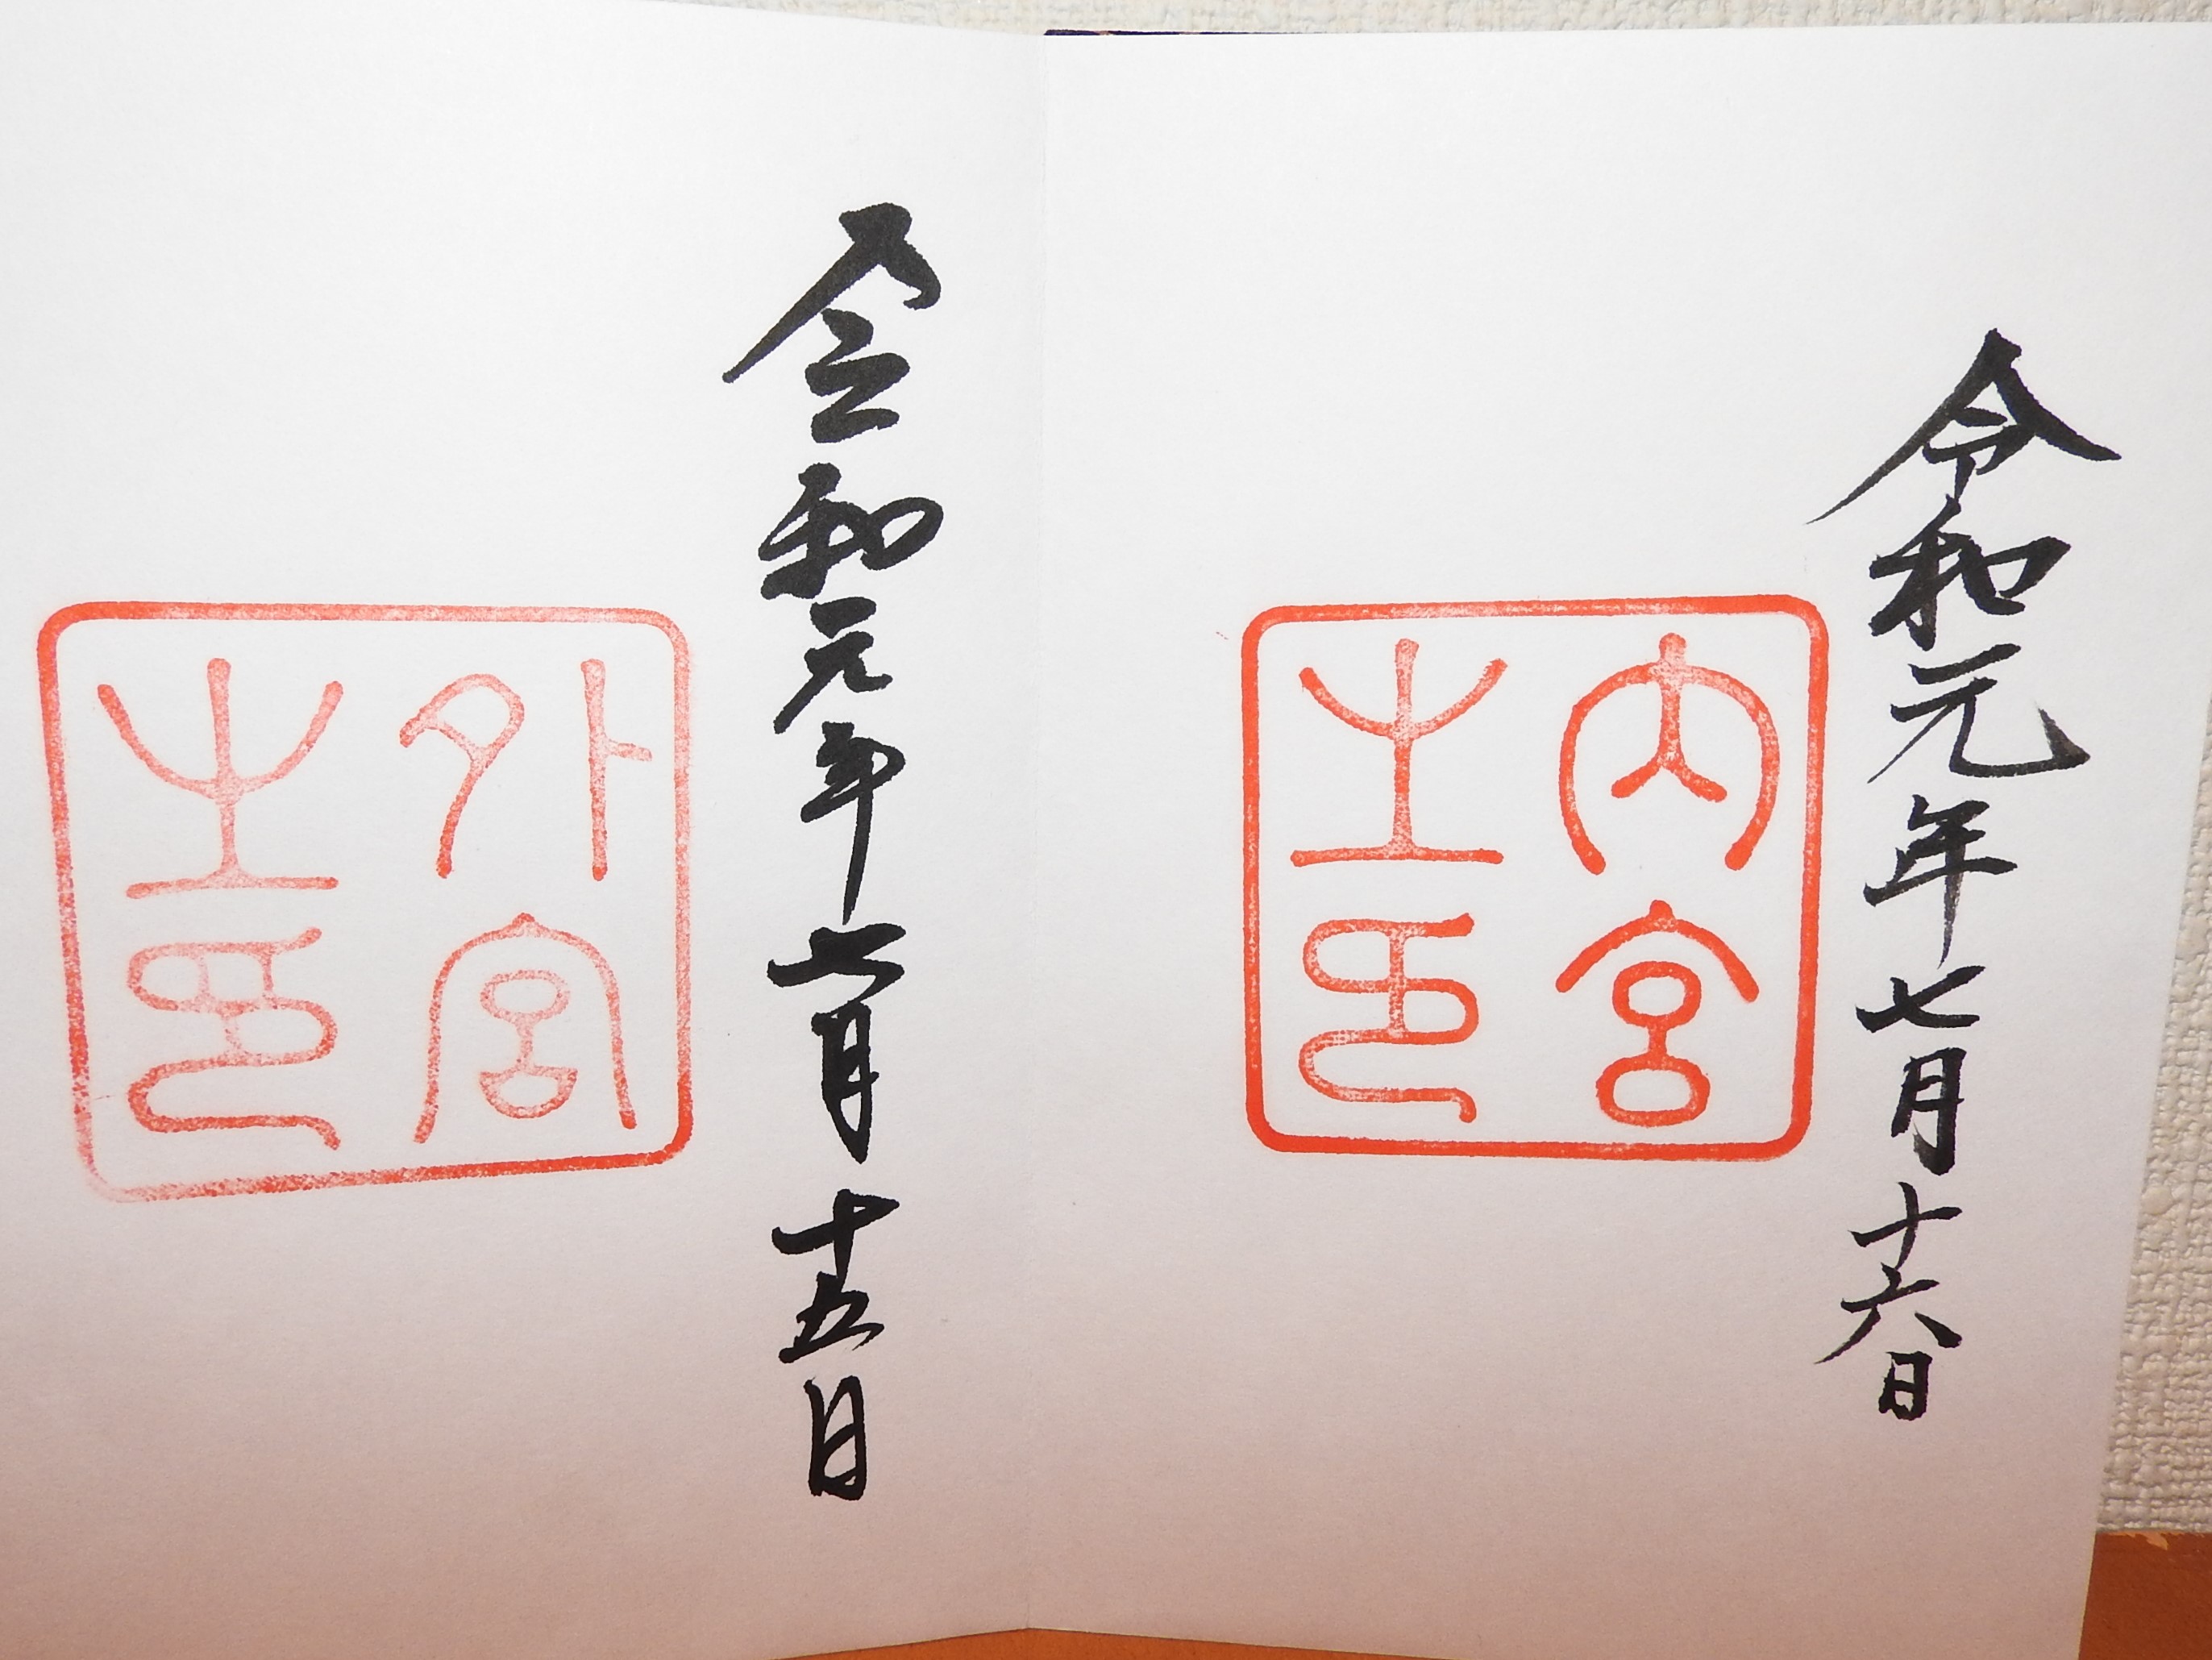 令和元年七月十六日
内宮
之印
令和元年七月十五日
外宮
之印